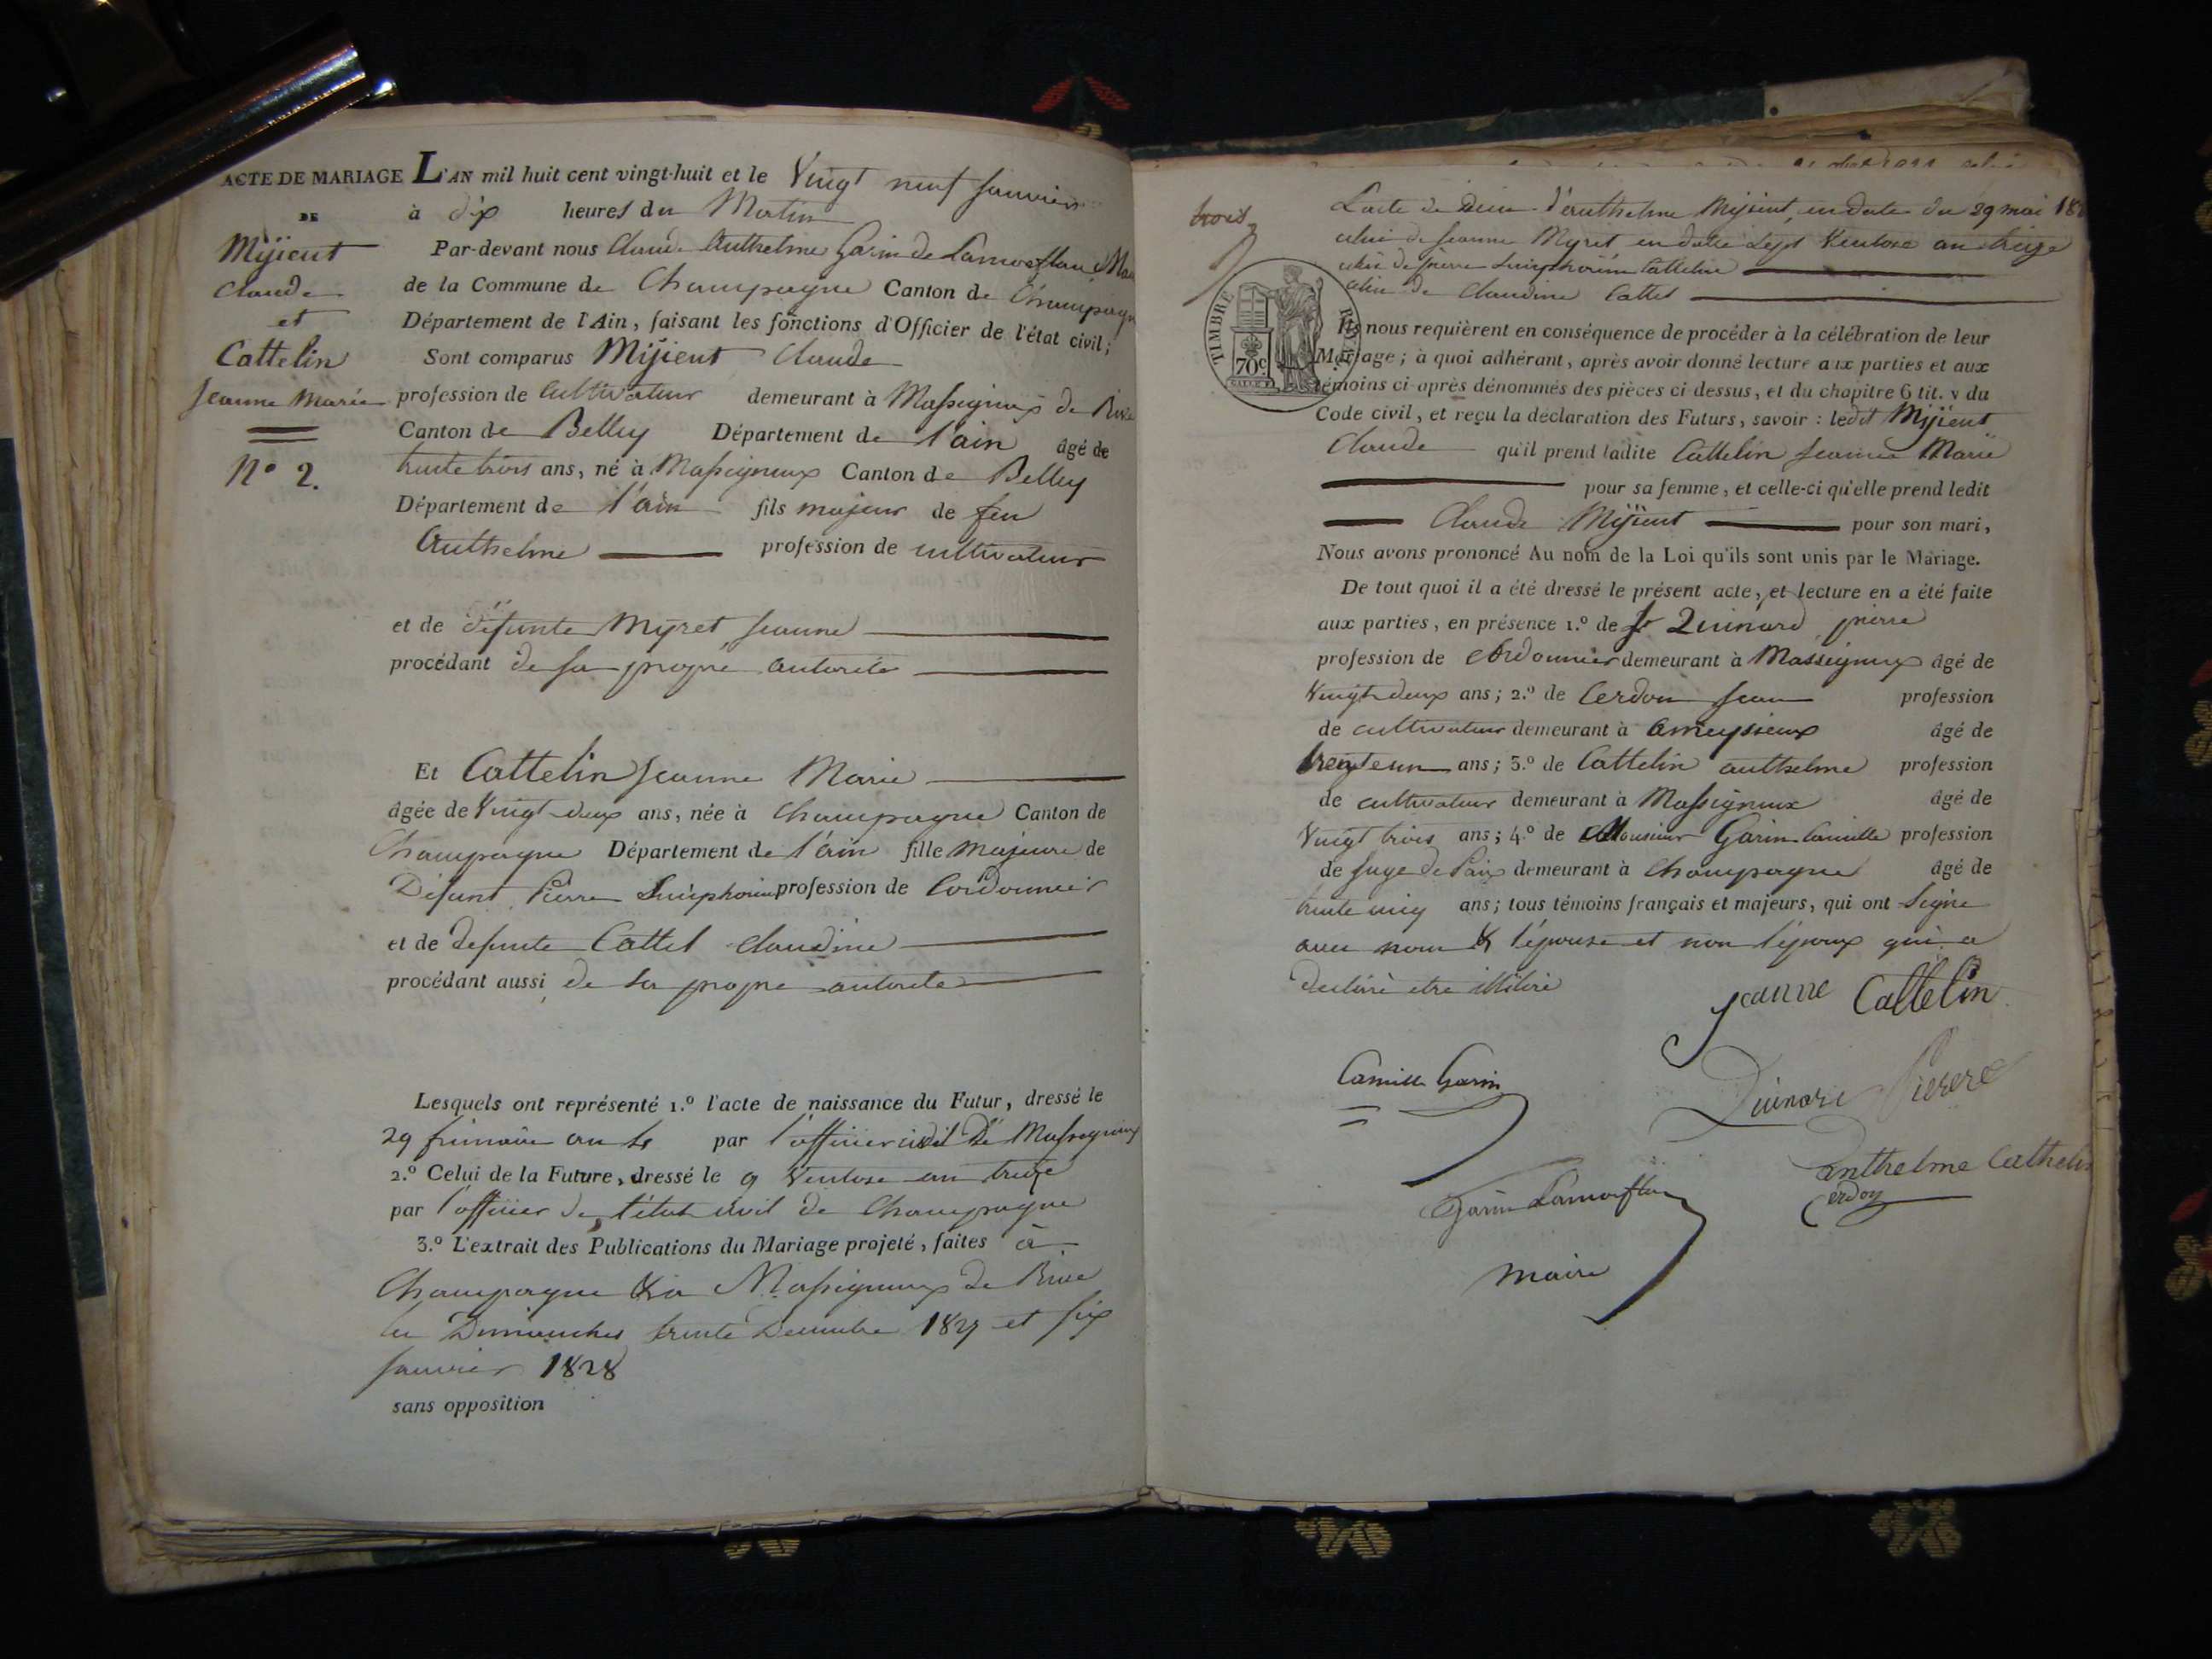 ACTE DE MARIAGE
DE
Mijient
Claude
et
Cattelin
Jeanne Marie
N° 2.
L'AN mil huit cent vingt-huit et le Vingt neuf Janvier
à dix heures du Matin
Par-devant nous Claude Anthelme Garin de Lamorflan
de la Commune de Champagne Canton de Champagne
Département de l'Ain, faisant les fonctions d'Officier de l'état civil;
Sont comparus Mijient Claude
profession de Cultivateur demeurant à Massigneux de Rive
Canton de Belley Département de l'ain âgé de
trente trois ans, né à Massigneux Canton de Belley
Département de l'ain fils majeur de feu
Anthelme profession de cultivateur
et de défunte Myret Jeanne
procédant de sa propre autorité
Et Cattelin Jeanne Marie
âgée de Vingt-deux ans, née à Champagne Canton de
Champagne Département de l'ain fille majeure de
Défunt Pierre Simphorien profession de Cordonnier
et de defunte Cattel Claudine
procédant aussi de sa propre autorité
Lesquels ont représenté 1.° l'acte de naissance du Futur, dressé le
29 frimaire an par l'officier civil de Massigneux
2.° Celui de la Future, dressé le 9 Ventose an treize
par l'officier de l'état civil de Champagne
3.° L'extrait des Publications du Mariage projeté, faites à
Champagne & à Massigneux de Rive
les Dimanches trente Decembre 1827 et six
Janvier 1828
sans opposition
trois
L'acte de deces d'anthelme Mijient, en date du 29 mai
celui de Jeanne Myret en date Sept Ventose an treize
celui de pierre Simphorien Cattelin
celui de Claudine Cattel
TIMBRE ROYAL
70c.
Ils nous requièrent en conséquence de procéder à la célébration de leur
Mariage; à quoi adhérant, après avoir donné lecture aux parties et aux
témoins ci-après dénommés des pièces ci-dessus, et du chapitre 6 tit. v du
Code civil, et reçu la déclaration des Futurs, savoir: ledit Mijient
Claude qu'il prend ladite Cattelin Jeanne Marie
pour sa femme, et celle-ci qu'elle prend ledit
Claude Mijient pour son mari,
Nous avons prononcé Au nom de la Loi qu'ils sont unis par le Mariage.
De tout quoi il a été dressé le présent acte, et lecture en a été faite
aux parties, en présence 1.° de Sr Quinard pierre
profession de Cordonnier demeurant à Massigneux âgé de
Vingt-deux ans; 2.° de Cerdon Jean profession
de cultivateur demeurant à Ameyzieux âgé de
trente un ans; 3.° de Cattelin anthelme profession
de cultivateur demeurant à Massigneux âgé de
Vingt trois ans; 4.° de Monsieur Garin Camille profession
de Juge de Paix demeurant à Champagne âgé de
trente cinq ans; tous témoins français et majeurs, qui ont Signé
avec nous & l'épouse et non l'époux qui a
declaré etre illitéré
Jeanne Cattelin
Camille Garin
Quinard Pierre
anthelme Cathelin
Garin Lamorflan
Cerdon
maire